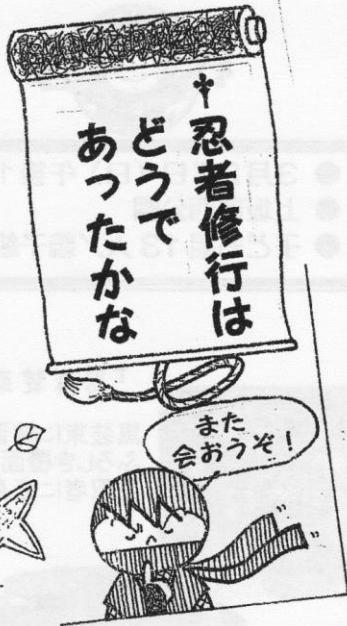 忍者修行は
どうで
あったかな
また
会おうぞ!